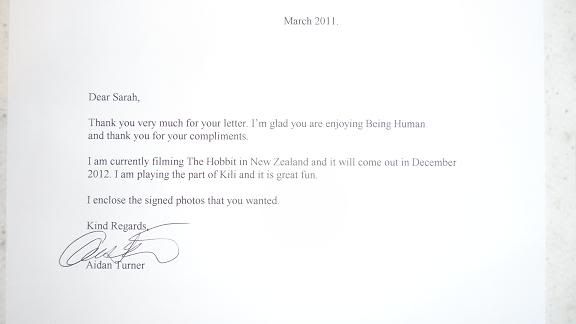 March 2011.
Dear Sarah,
Thank you very much for your letter. I'm glad you are enjoying Being Human
and thank you for your compliments.
I am currently filming The Hobbit in New Zealand and it will come out in December
2012. I am playing the part of Kili and it is great fun.
I enclose the signed photos that you wanted.
Kind Regards,
Aidan Turner